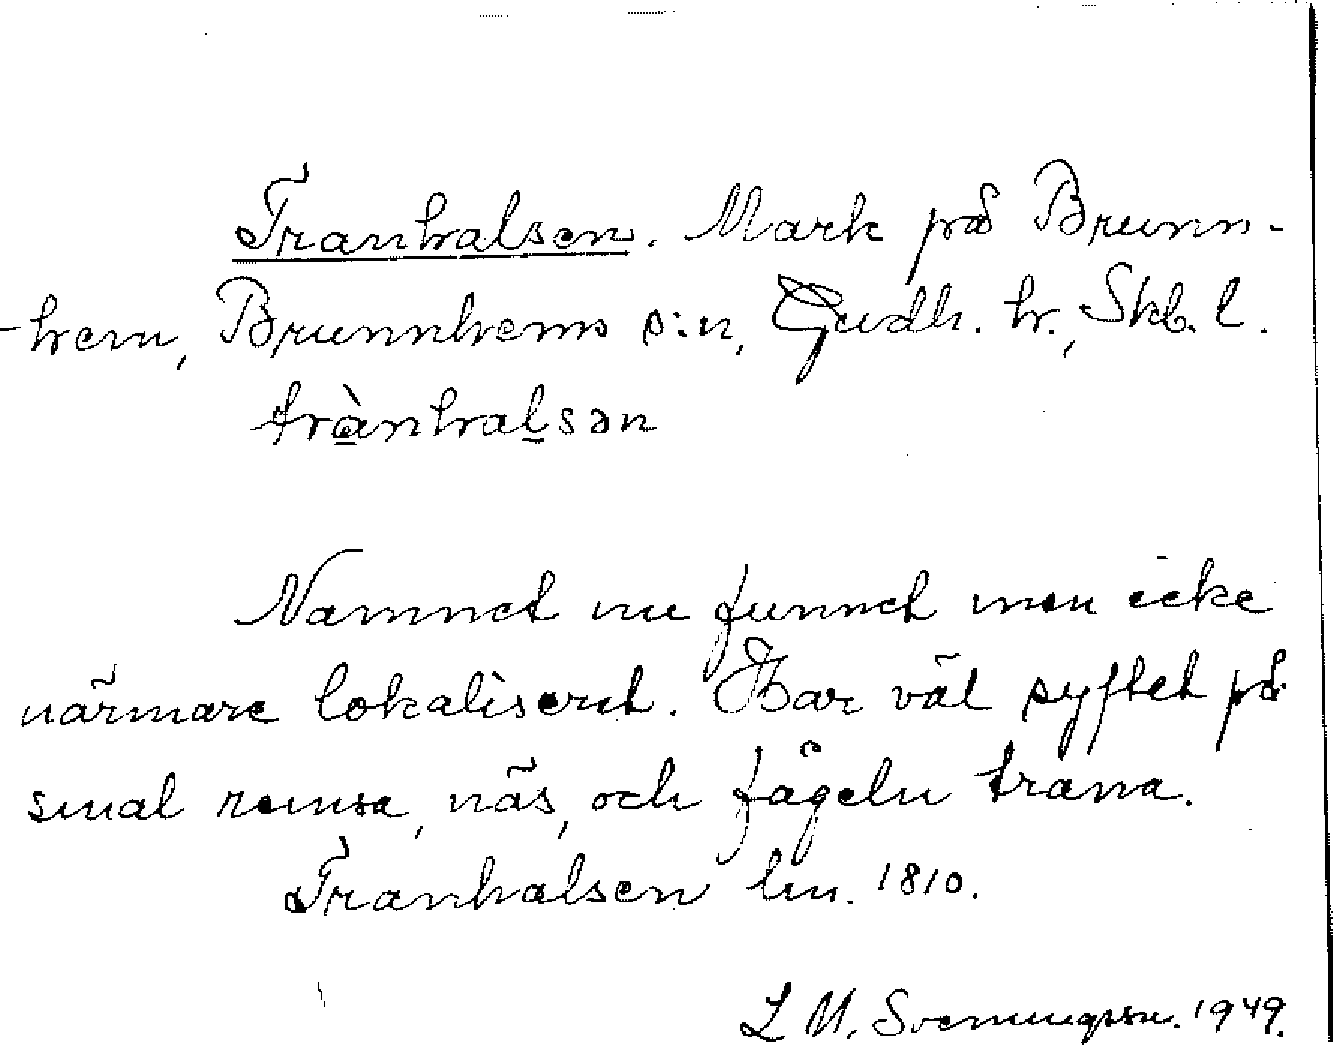 Tranhalsen. Mark på Brunn-
-hem, Brunnhems s:n, Gudh. hr., Skb. l.
trànhalsən
Namnet nu funnet men icke
närmare lokaliserat. Har väl syftet på
smal remsa, näs, och fågeln trana.
Tranhalsen lm. 1810.
L M. Svenungsson. 1949.